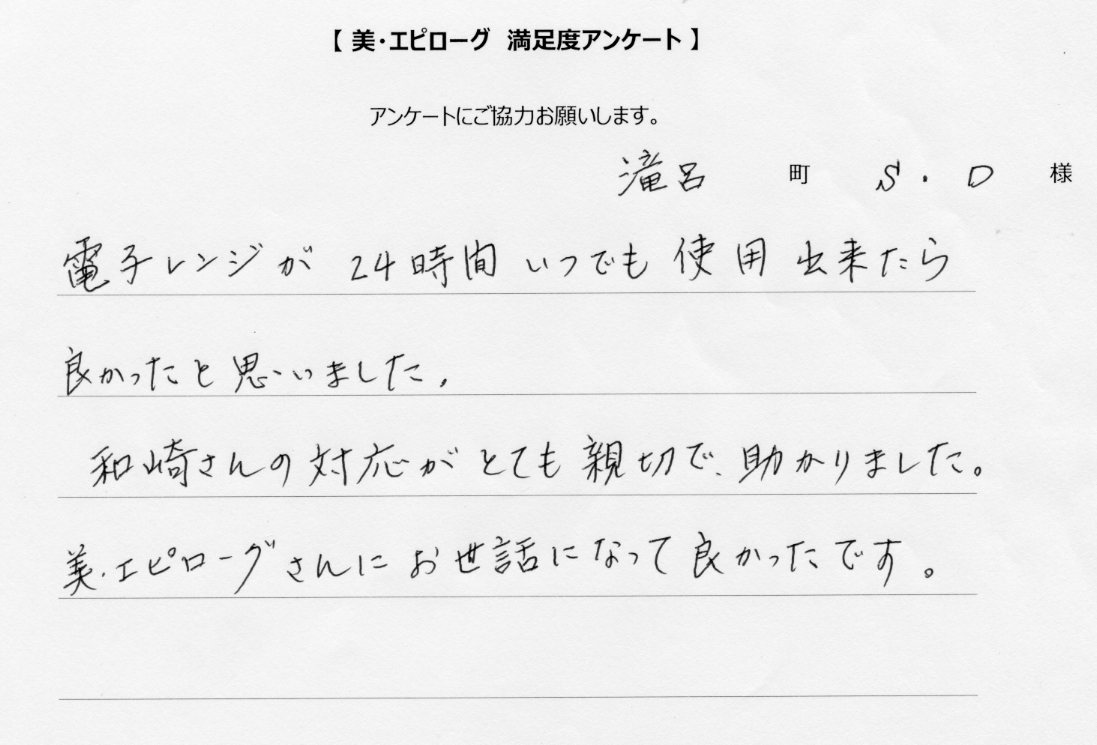 【 美・エピローグ 満足度アンケート 】
アンケートにご協力お願いします。
滝呂 町 S・D 様
電子レンジが 24時間 いつでも 使用 出来たら
良かったと思いました。
和崎さんの対応がとても親切で、助かりました。
美・エピローグさんにお世話になって良かったです。